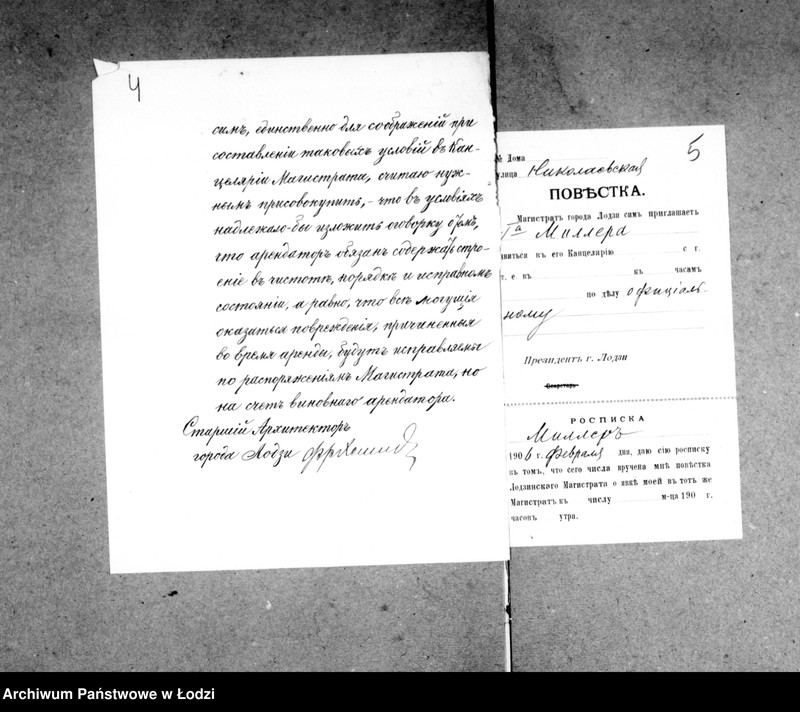 4
симъ, единственно для соображеній при
составленіи таковыхъ условій въ Кан-
целяріи Магистрата, считаю нуж-
нымъ присовокупить, - что въ условіяхъ
надлежало-бы изложить оговорку о томъ,
что арендаторъ обязанъ содержать строе-
ніе въ чистотѣ, порядкѣ и исправномъ
состояніи, а равно, что всѣ могущія
оказаться поврежденія, причиненныя
во время аренды, будутъ исправляемы
по распоряженіямъ Магистрата, но
на счетъ виновнаго арендатора.
Старшій Архитекторъ
города Лодзи
5
№ Дома
улица Николаевская
ПОВѢСТКА.
Магистратъ города Лодзи симъ приглашаетъ
Миллера
явиться къ его Канцелярію с г.
т. е къ къ часамъ
по дѣлу официаль-
ному
Президентъ г. Лодзи
Секретарь
РОСПИСКА
Миллеръ
1906 г. февраля дня, даю сію росписку
въ томъ, что сего числа вручена мнѣ повѣстка
Лодзинскаго Магистрата о явкѣ моей въ тотъ же
Магистратъ къ числу м-ца 190 г.
часовъ утра.
Archiwum Państwowe w Łodzi